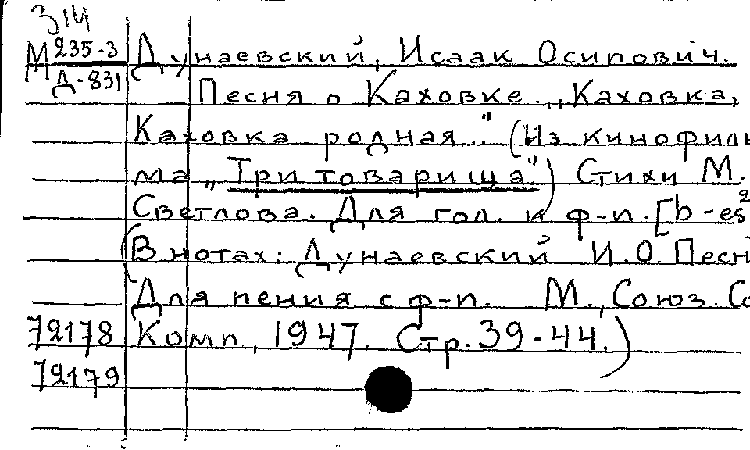 314
М 235-3
Д-831
Дунаевский, Исаак Осипович.
Песня о Каховке. „Каховка,
Каховка родная." (Из кинофиль
ма „Три товарища") Стихи М.
Светлова. Для гол. и ф-п. [b-es²
(В нотах: Дунаевский И.О. Песн
Для пения с ф-п. М., Союз. Со
72178 Комп., 1947. Стр. 39-44.)
72179